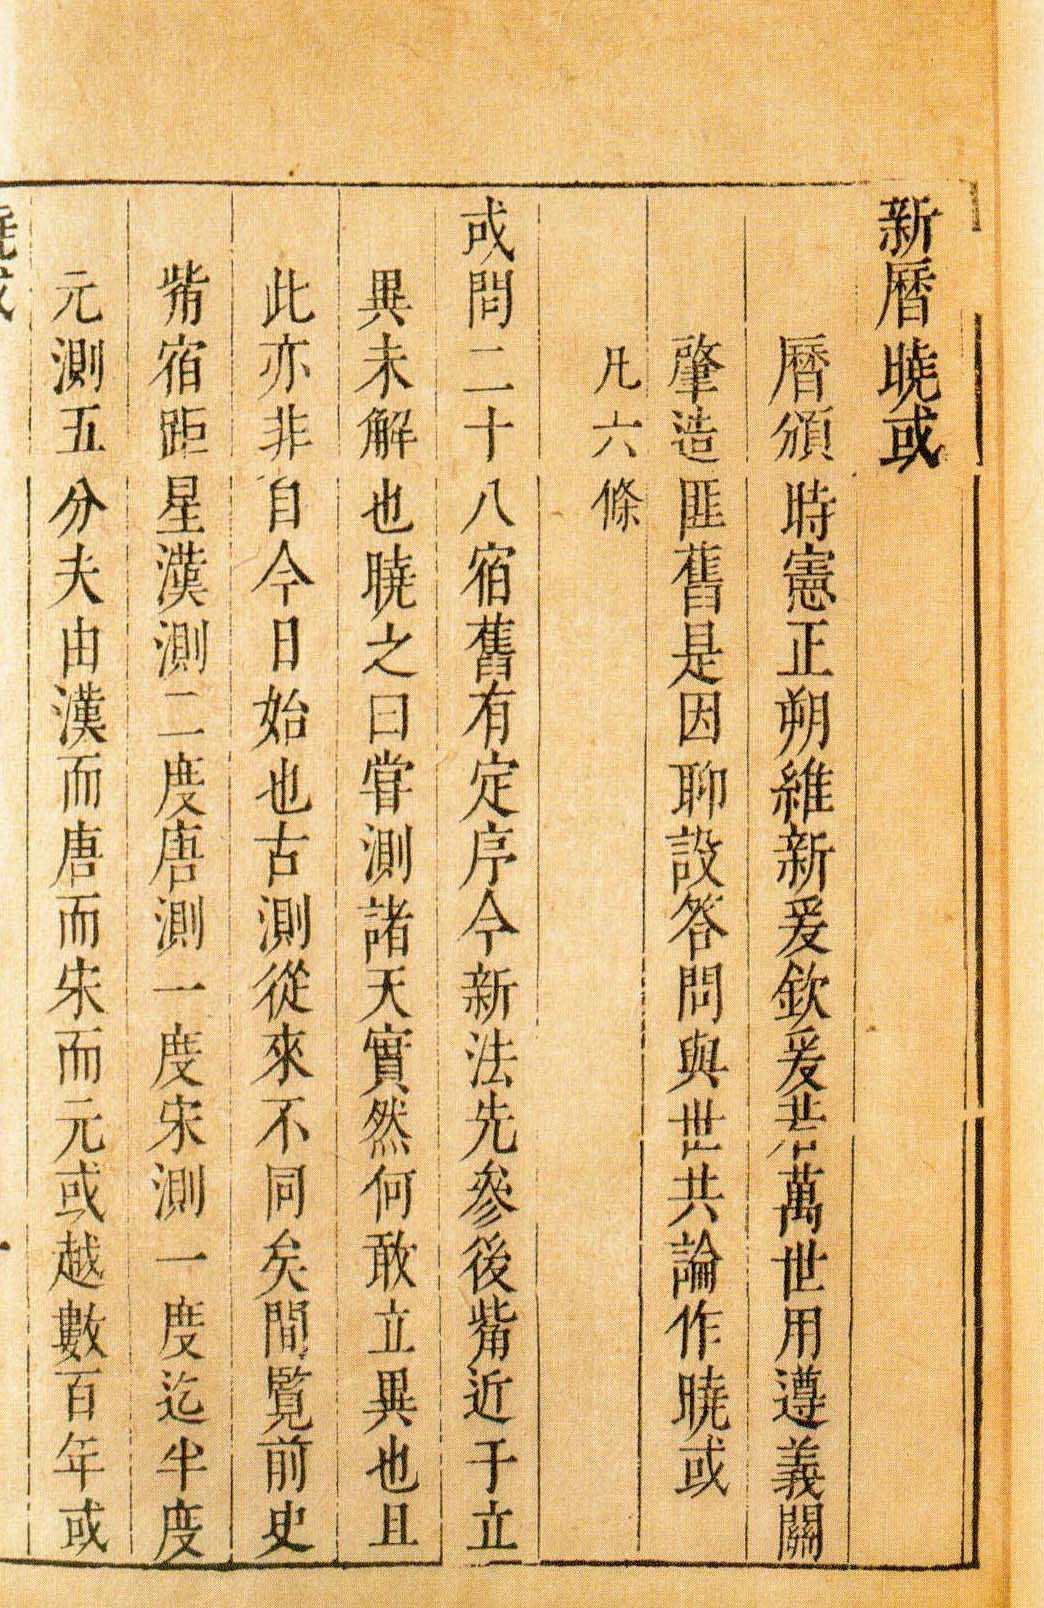 新曆曉或
曆頒時憲正朔維新爰欽爰若萬世用遵義關
肇造匪舊是因聊設答問與世共論作曉或
凡六條
或問二十八宿舊有定序今新法先參後觜近于立
異未解也曉之曰嘗測諸天實然何敢立異也且
此亦非自今日始也古測從來不同矣閒覽前史
觜宿距星漢測二度唐測一度宋測一度迄半度
元測五分夫由漢而唐而宋而元或越數百年或
曉或